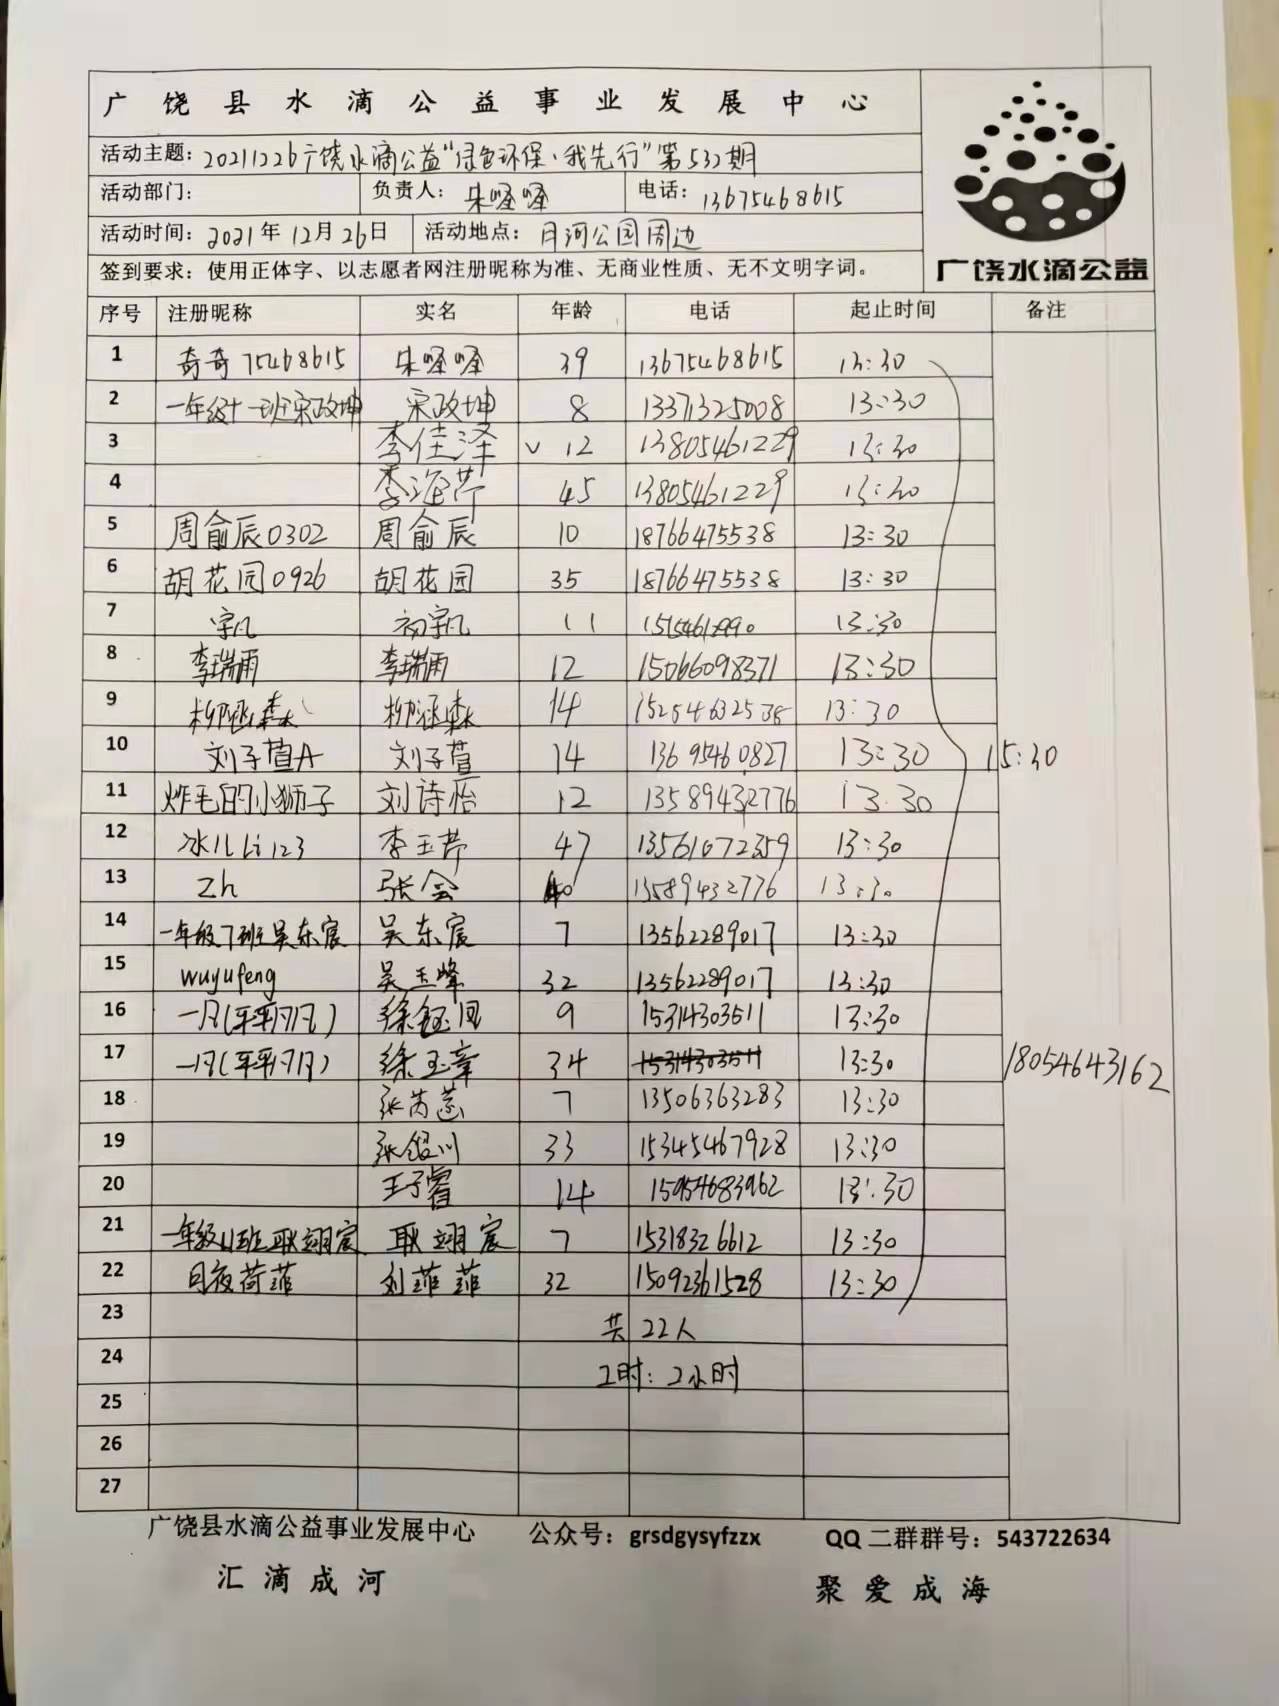 广饶县水滴公益事业发展中心
活动主题：20211226广饶水滴公益"绿色环保、我先行"第532期
活动部门： 负责人：朱峄峄 电话：13675468615
活动时间：2021年12月26日 活动地点：月河公园周边
签到要求：使用正体字、以志愿者网注册昵称为准、无商业性质、无不文明字词。
广饶水滴公益
序号 注册昵称 实名 年龄 电话 起止时间 备注
1 奇奇75468615 朱峄峄 39 13675468615 13:30
2 一年级十一班宋政坤 宋政坤 8 13371325008 13:30
3 李佳泽 √ 12 13805461229 13:30
4 李海芹 45 13805461229 13:30
5 周俞辰0302 周俞辰 10 18766475538 13:30
6 胡花园0926 胡花园 35 18766475538 13:30
7 宇凡 初宇凡 11 13:30
8 李瑞雨 李瑞雨 12 15066098371 13:30
9 柳涵森 柳涵森 14 15254632538 13:30
10 刘子萱A 刘子萱 14 13695460827 13:30 15:30
11 炸毛的小狮子 刘诗怡 12 13589432776 13:30
12 冰儿Li123 李玉芹 47 13561072359 13:30
13 Zh 张会 40 13589432776 13:30
14 一年级7班吴东宸 吴东宸 7 13562289017 13:30
15 wuyufeng 吴玉峰 32 13562289017 13:30
16 一凡(平平凡凡) 徐钰凡 9 15314303511 13:30
17 一凡(平平凡凡) 徐玉章 34 15314303511 13:30 18054643162
18 张芮菡 7 13506363283 13:30
19 张银川 33 15345467928 13:30
20 王子睿 14 15954683962 13:30
21 一年级11班耿翊宸 耿翊宸 7 15318326612 13:30
22 日夜荷菲 刘菲菲 32 15092361528 13:30
23 共22人
24 工时：2小时
25
26
27
广饶县水滴公益事业发展中心 公众号：grsdgysyfzzx QQ二群群号：543722634
汇滴成河 聚爱成海